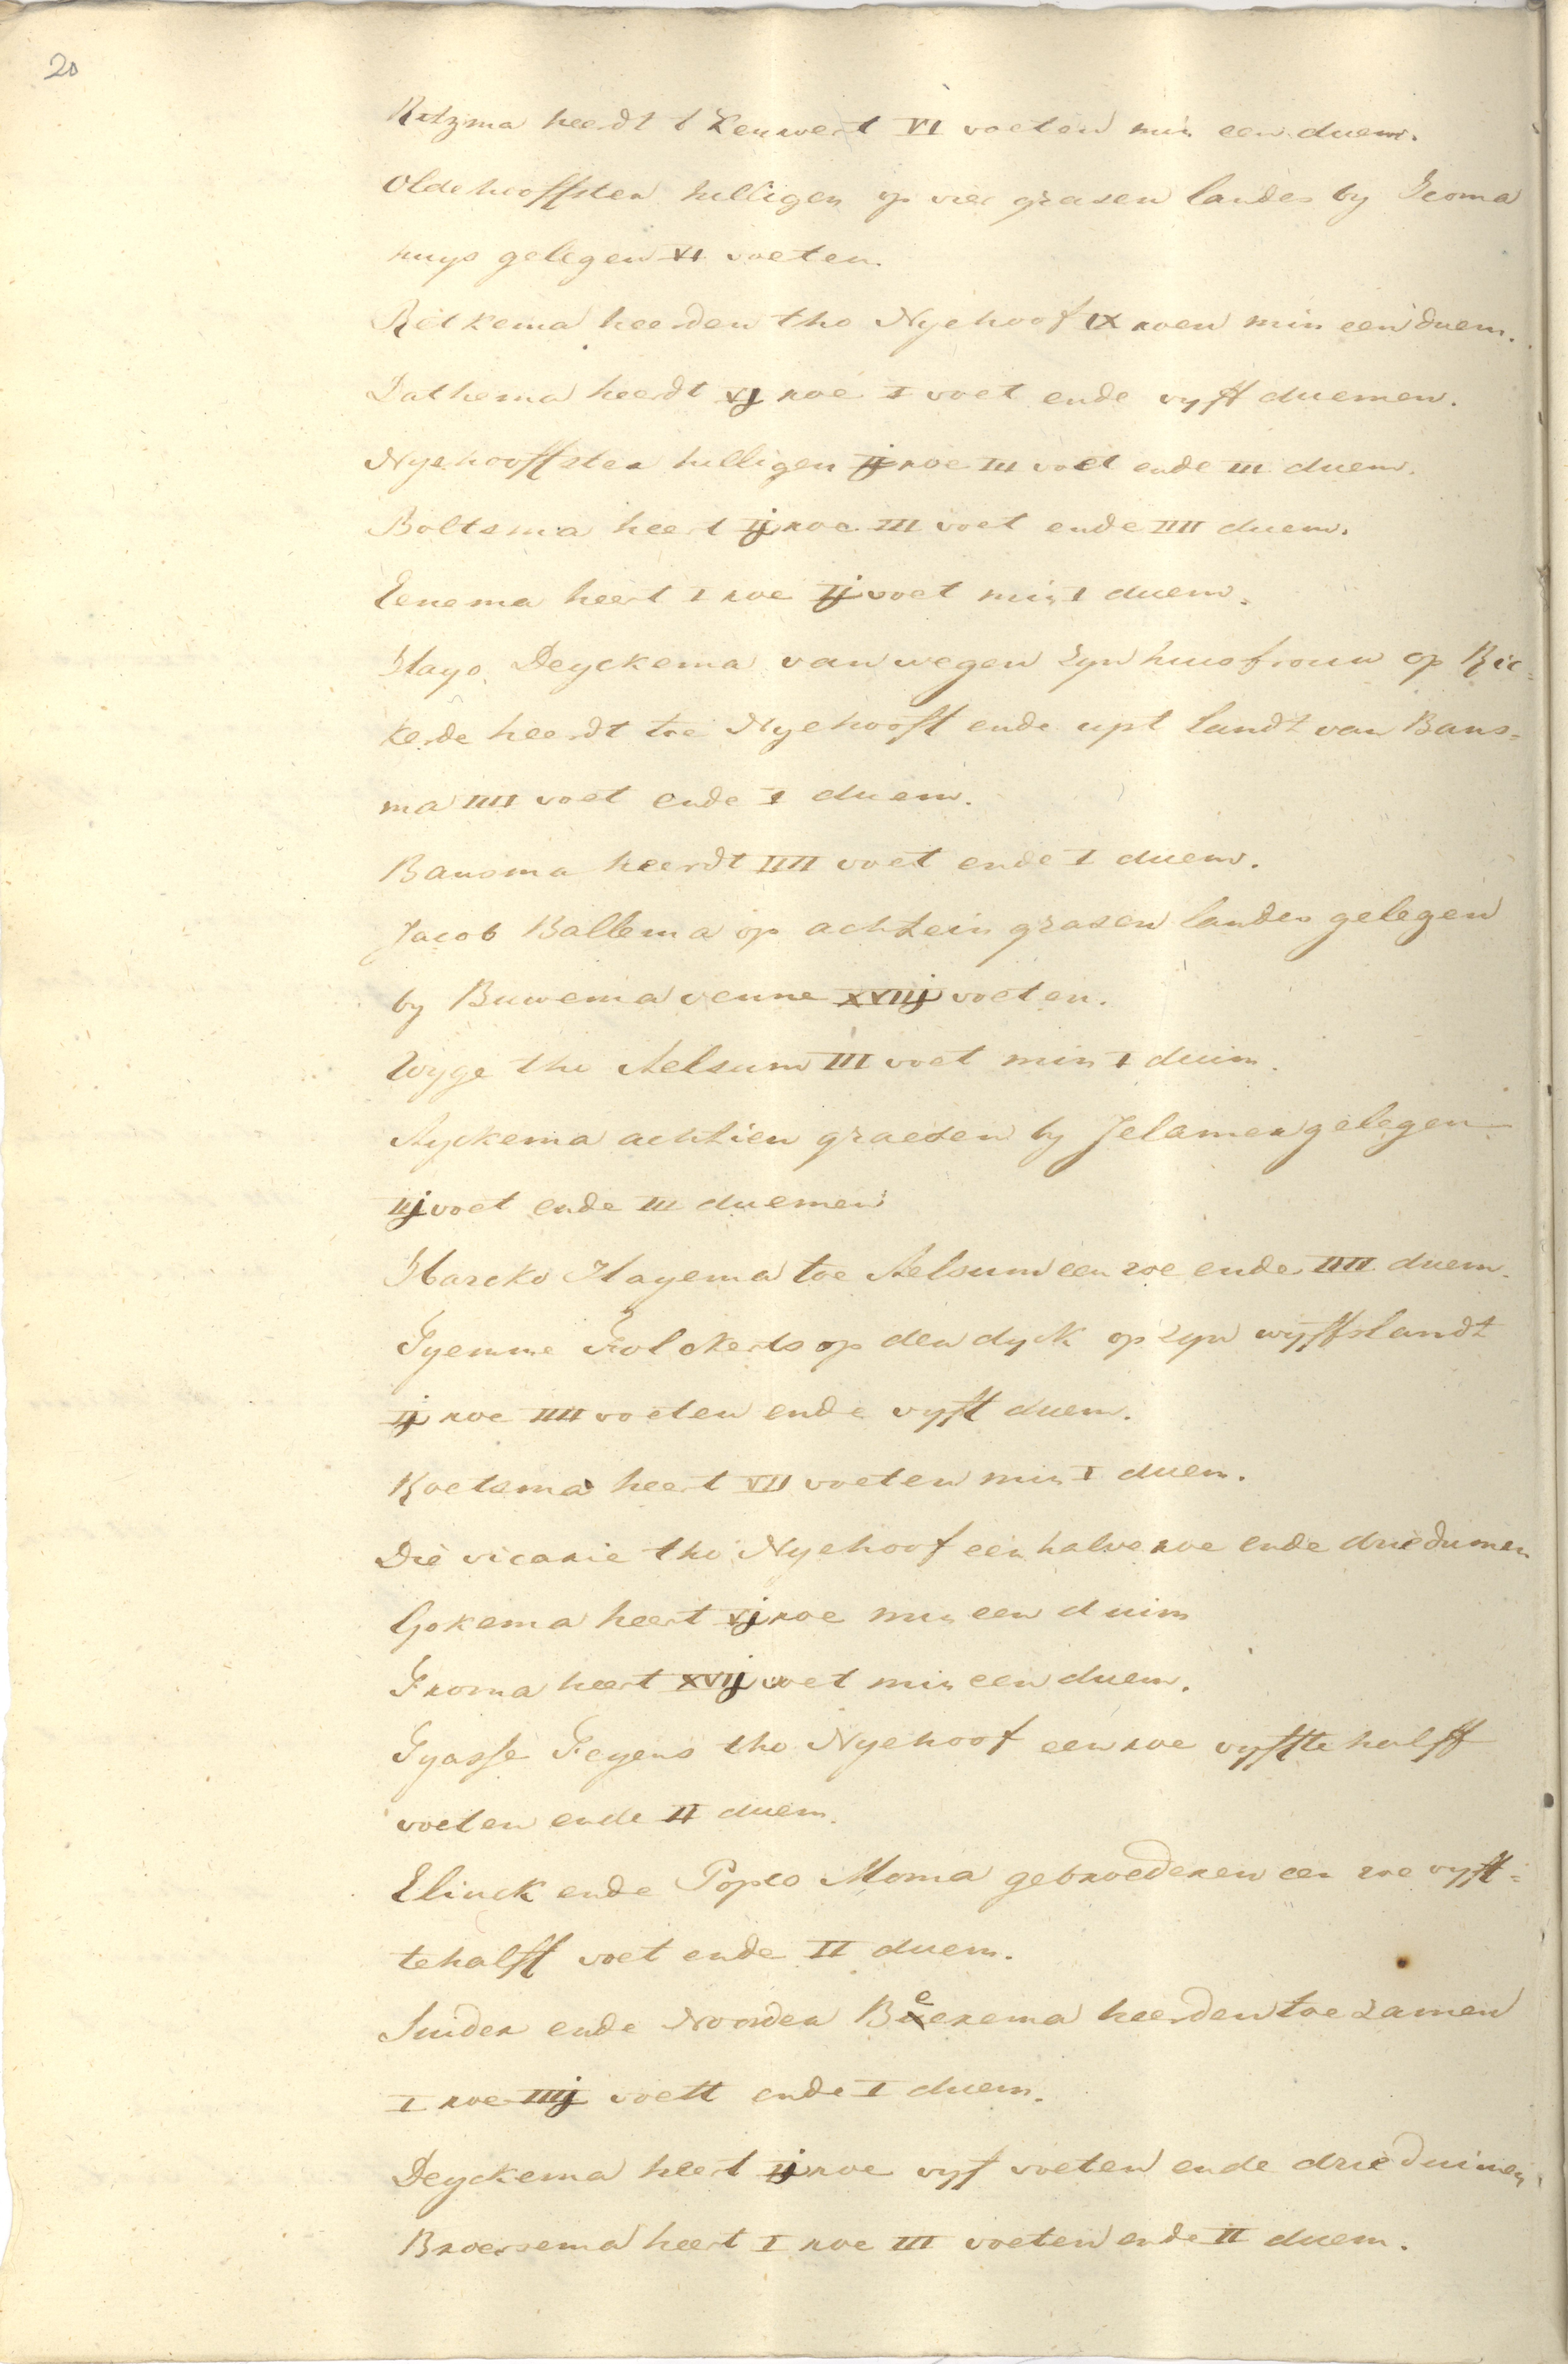 20
Ritzma heerdt t Leuwert VI voeten min een duem.
Oldehooffster hilligen op vier grasen landes by Iroma
huys gelegen VI voeten.
Rickema heerden tho Nyehoof IX roen min een duem.
Dathema heerdt vj roe I voet ende vyff duemen.
Nyehooffster hilligen IJ roe III voet ende III duem.
Boltsma heert IJ roe III voet ende IIII duem.
Eenema heert I roe IJ voet min I duem.
Hayo Deyckema van wegen zyn huusfrouw op Ric=
kerde heerdt toe Nyehooft ende upt landt van Baus=
ma IIII voet ende I duem.
Bausma heerdt IIII voet ende I duem.
Jacob Ballema op achtein grasen landes gelegen
by Buwema venne XVIIJ voeten.
Wyge tho Aelsum III voet min I duim.
Ayckema achtien graesen by Jelamer gelegen
IIJ voet ende III duemen
Harcko Hayema toe Aelsum een roe ende IIII duem.
Tyemme Folckerts op den dyck op zyn wyffslandt
IJ roe IIII voeten ende vyff duem.
Roetsma heert VII voeten min I duem.
Die vicarie tho Nyehoof een halve roe ende drie dumen
Gokema heert vj roe min een duim
Iroma heert XVIJ voet min een duem.
Tyasse Feyens tho Nyehoof een roe vyfftehalff
voeten ende II duem.
Elinck ende Popco Moma gebroederen een roe vyff=
tehalff voet ende II duem.
Suider ende Noorder Beerema heerden toe zamen
I roe IIIJ voett ende I duem.
Deyckema heert IJ roe vyf voeten ende drie duimen
Broersema heert I roe III voeten ende II duem.